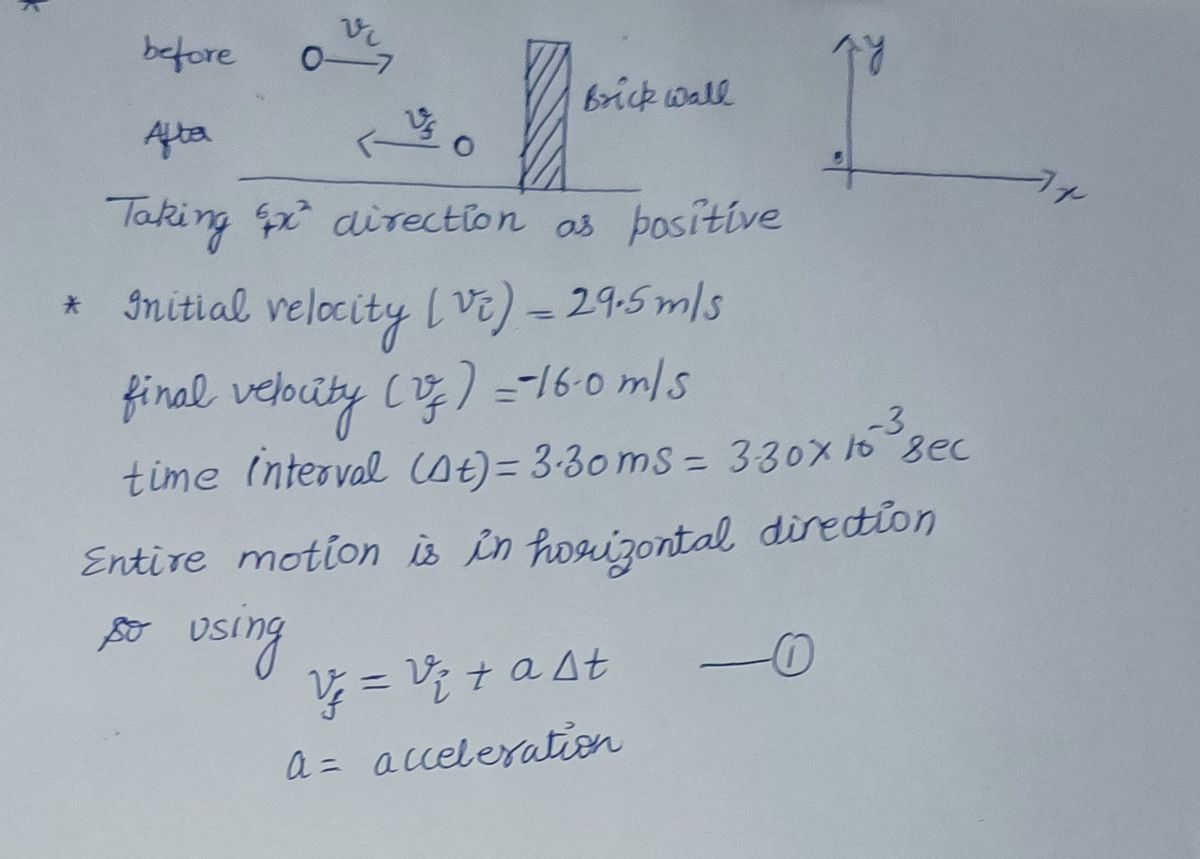 before vi
Brick wall
y
After vf
x
Taking "+x" direction as positive
* Initial velocity (vi) = 29.5 m/s
final velocity (vf) = -16.0 m/s
time interval (Δt) = 3.30 ms = 3.30 x 10⁻³ sec
Entire motion is in horizontal direction
so using
vf = vi + a Δt —①
a = acceleration